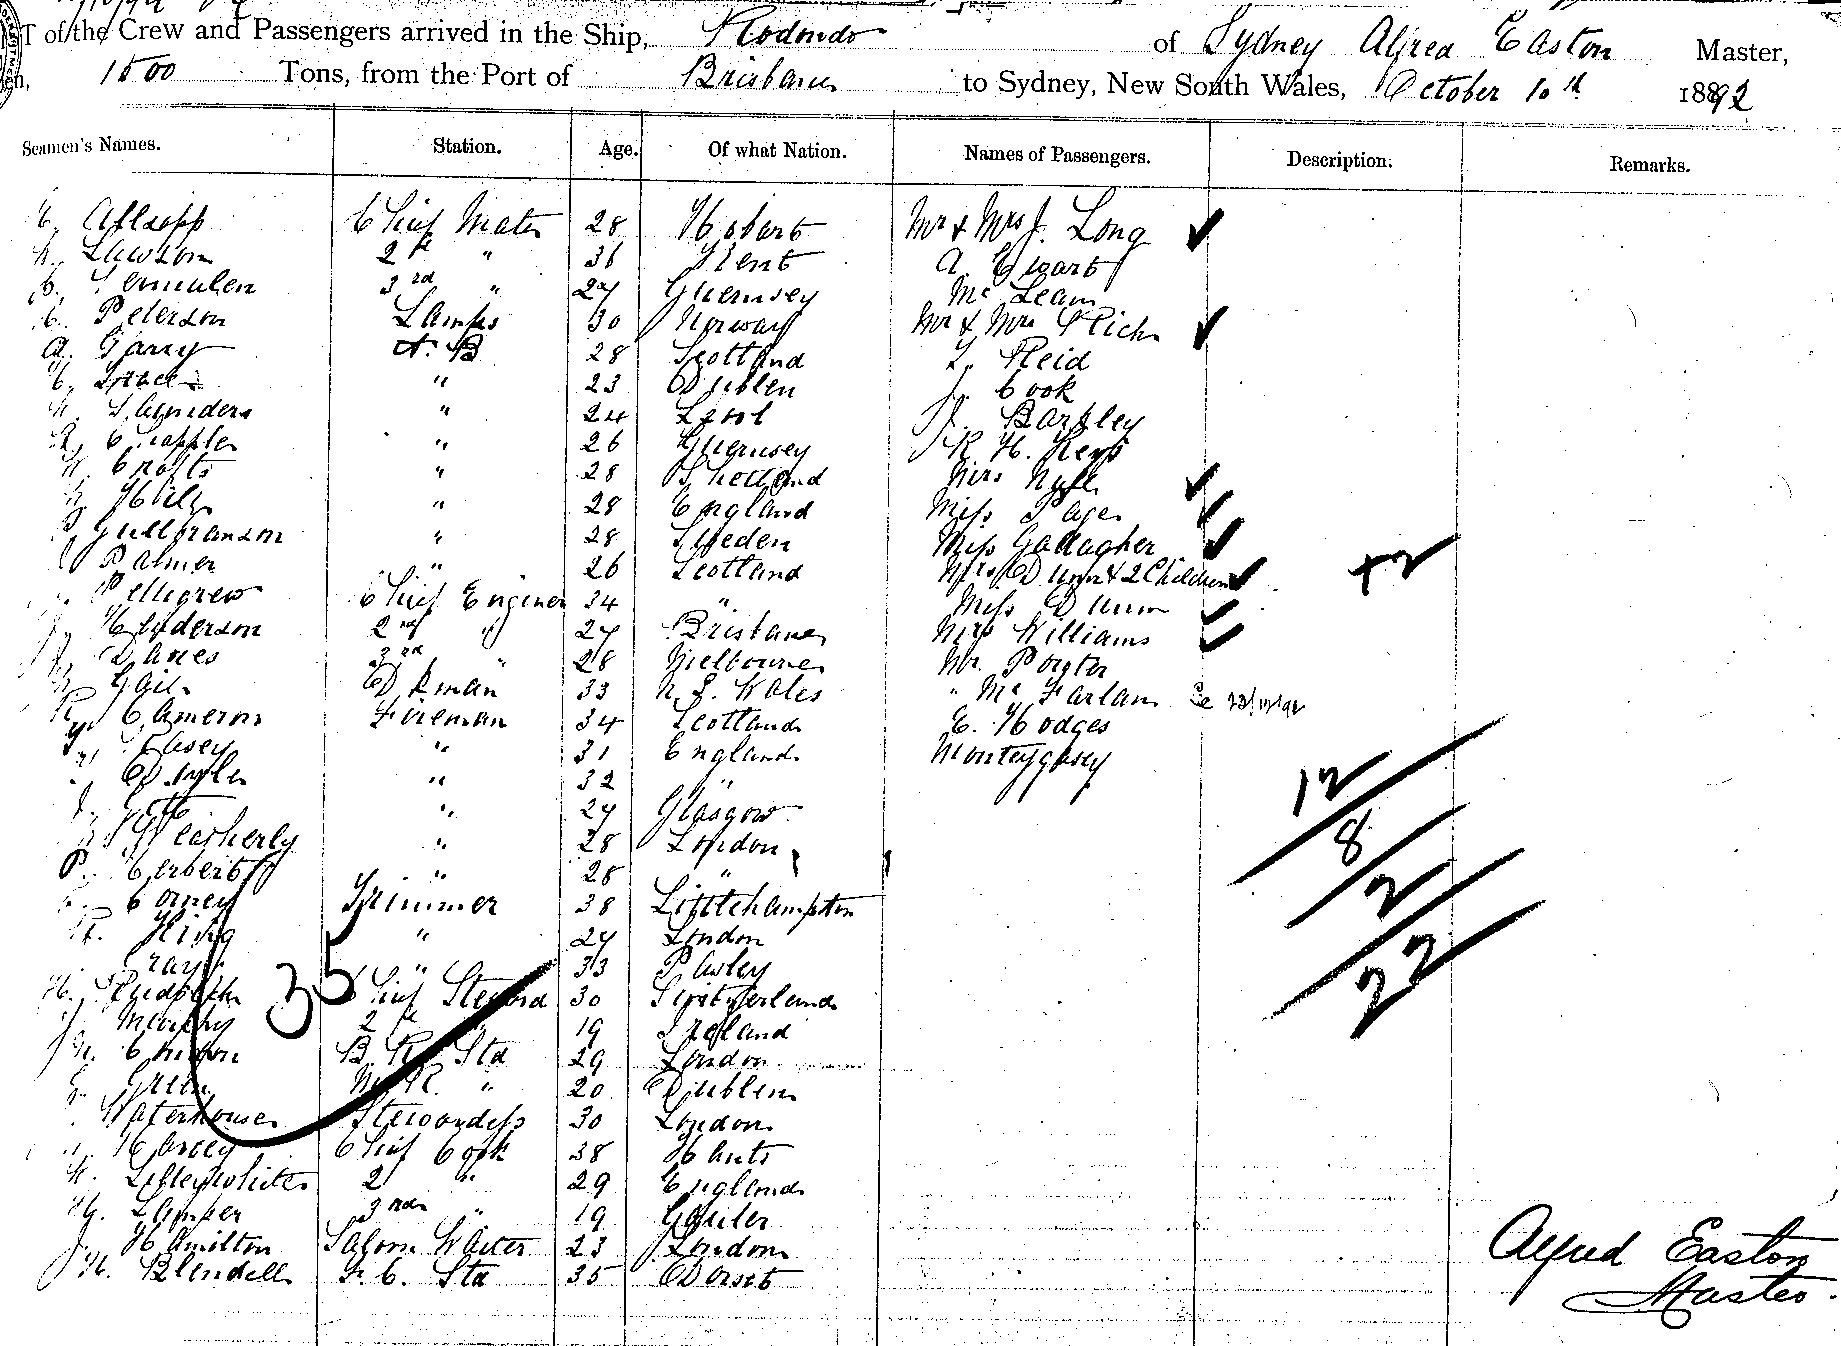 of the Crew and Passengers arrived in the Ship, Rodondo of Sydney Alfred Easton Master,
1500 Tons, from the Port of Brisbane to Sydney, New South Wales, October 10th 1892
Seamen's Names. Station. Age. Of what Nation. Names of Passengers. Description. Remarks.
Allsopp Chief Mate 28 Hobart Mr & Mrs J. Long
Lawson 2d " 31 Kent A. Ewart
3rd " 27 Guernsey Mc Lean
Peterson Lamps 30 Norway Mr & Mrs Rich
A. Garry A. B 28 Scotland Reid
" 23 Dublin J. Cook
Saunders " 24 Lpool Barkley
Chapple " 26 Guernsey R. H. Keys
Crofts " 28 Shetland Mrs
Hill " 28 England Miss Page
Gullbranson " 28 Sweden Miss Gallagher
Palmer " 26 Scotland Mrs Dunn & 2 Children +2
Pettigrew Chief Engineer 34 " Miss Dunn
Henderson 2nd " 27 Brisbane Mrs Williams
Davies 3rd " 28 Melbourne Mr. Porter
Gail Dkman 33 N. S. Wales " Mc Farlan
Cameron Fireman 34 Scotland E. Hodges
Casey " 31 England
" 32 " 12
" 27 Glasgow
Weatherly " 28 London 8
P. Herbert " 28 "
Corney Trimmer 38 Littlehampton 2
King " 27 London
Gray " 33 Paisley 22
H. Rudolph 35 Chief Steward 30 Switzerland
J. Murphy 2d " 19 Ireland
B. R. Std 29 London
Green " 20 Dublin
Waterhouse Stewardess 30 London
Harvey Chief Cook 38 Hants
Lilleywhite 2 " 29 England
3rd " 19
J. Hamilton Saloon Waiter 23 London
Blendell F. C. Std 35 Dorset
Alfred Easton
Master.